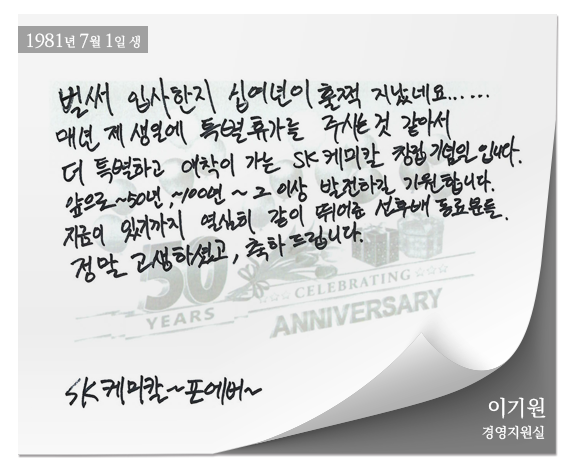 1981년 7월 1일 생
벌써 입사한지 십여년이 훌쩍 지났네요......
매년 제 생일에 특별휴가를 주시는것 같아서
더 특별하고 애착이 가는 SK케미칼 창립기념일 입니다.
앞으로~50년,~100년 ~ 그 이상 발전하길 기원합니다.
지금이 있기까지 열심히 같이 뛰어준 선후배 동료분들.
정말 고생하셨고, 축하 드립니다.
50
YEARS
CELEBRATING
ANNIVERSARY
SK케미칼~포에버~
이기원
경영지원실